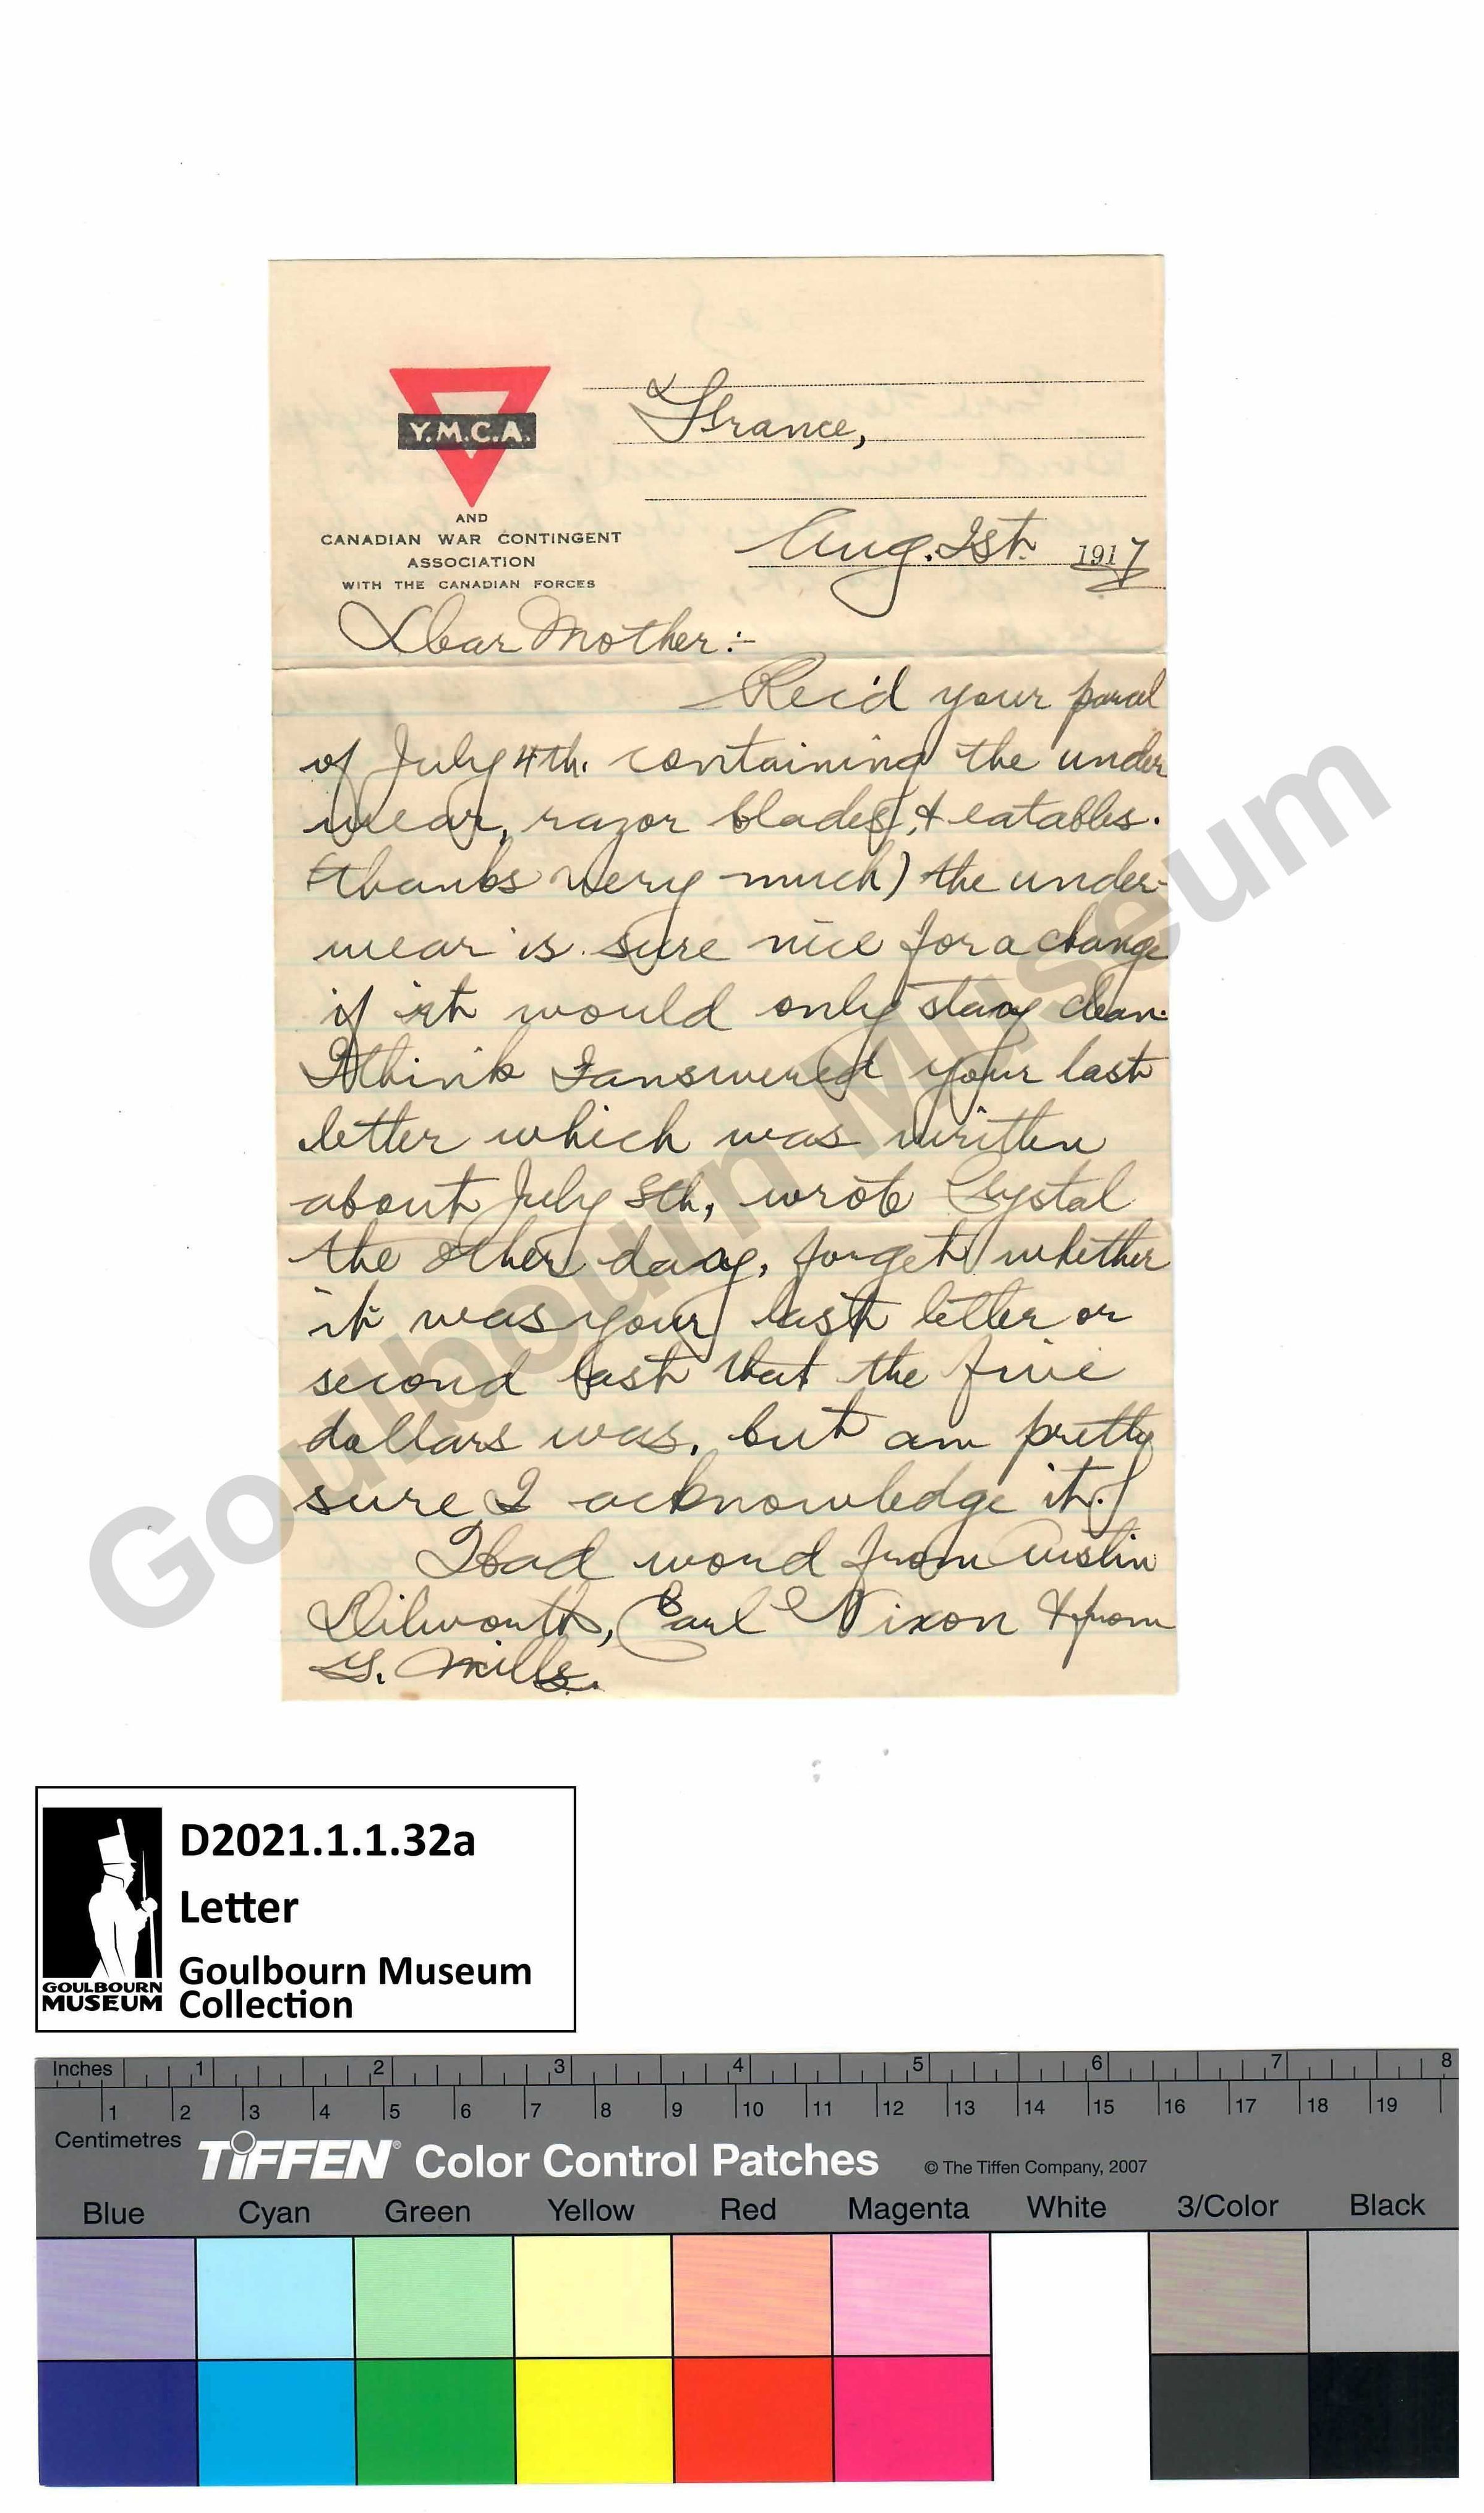 Y.M.C.A.
AND
CANADIAN WAR CONTINGENT
ASSOCIATION
WITH THE CANADIAN FORCES
France,
Aug. 1st. 1917
Dear Mother:-
Rec'd your parcel
of July 4th. containing the under
wear, razor blades, & eatables.
(thanks very much) the under-
wear is sure nice for a change
if it would only stay clean.
I think I answered your last
letter which was written
about July 8th, wrote Crystal
the other day, forget whether
it was your last letter or
second last that the five
dollars was, but am pretty
sure I acknowledge it.
Had word from Austin
Dilworth, Earl Nixon & from
G. Mills.
Goulbourn Museum
D2021.1.1.32a
Letter
Goulbourn Museum
Collection
GOULBOURN
MUSEUM
Inches 1 2 3 4 5 6 7 8
1 2 3 4 5 6 7 8 9 10 11 12 13 14 15 16 17 18 19
Centimetres
TIFFEN® Color Control Patches © The Tiffen Company, 2007
Blue Cyan Green Yellow Red Magenta White 3/Color Black